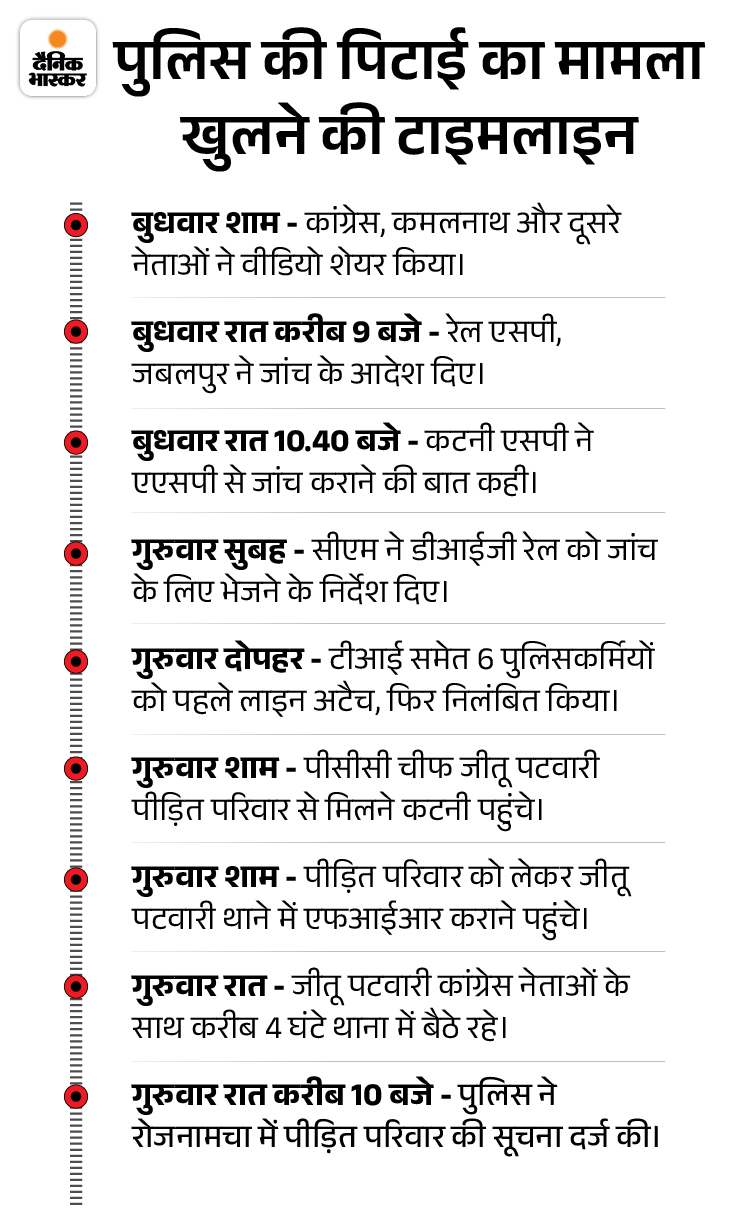 दैनिक
भास्कर
पुलिस की पिटाई का मामला
खुलने की टाइमलाइन
बुधवार शाम - कांग्रेस, कमलनाथ और दूसरे
नेताओं ने वीडियो शेयर किया।
बुधवार रात करीब 9 बजे - रेल एसपी,
जबलपुर ने जांच के आदेश दिए।
बुधवार रात 10.40 बजे - कटनी एसपी ने
एएसपी से जांच कराने की बात कही।
गुरुवार सुबह - सीएम ने डीआईजी रेल को जांच
के लिए भेजने के निर्देश दिए।
गुरुवार दोपहर - टीआई समेत 6 पुलिसकर्मियों
को पहले लाइन अटैच, फिर निलंबित किया।
गुरुवार शाम - पीसीसी चीफ जीतू पटवारी
पीड़ित परिवार से मिलने कटनी पहुंचे।
गुरुवार शाम - पीड़ित परिवार को लेकर जीतू
पटवारी थाने में एफआईआर कराने पहुंचे।
गुरुवार रात - जीतू पटवारी कांग्रेस नेताओं के
साथ करीब 4 घंटे थाना में बैठे रहे।
गुरुवार रात करीब 10 बजे - पुलिस ने
रोजनामचा में पीड़ित परिवार की सूचना दर्ज की।